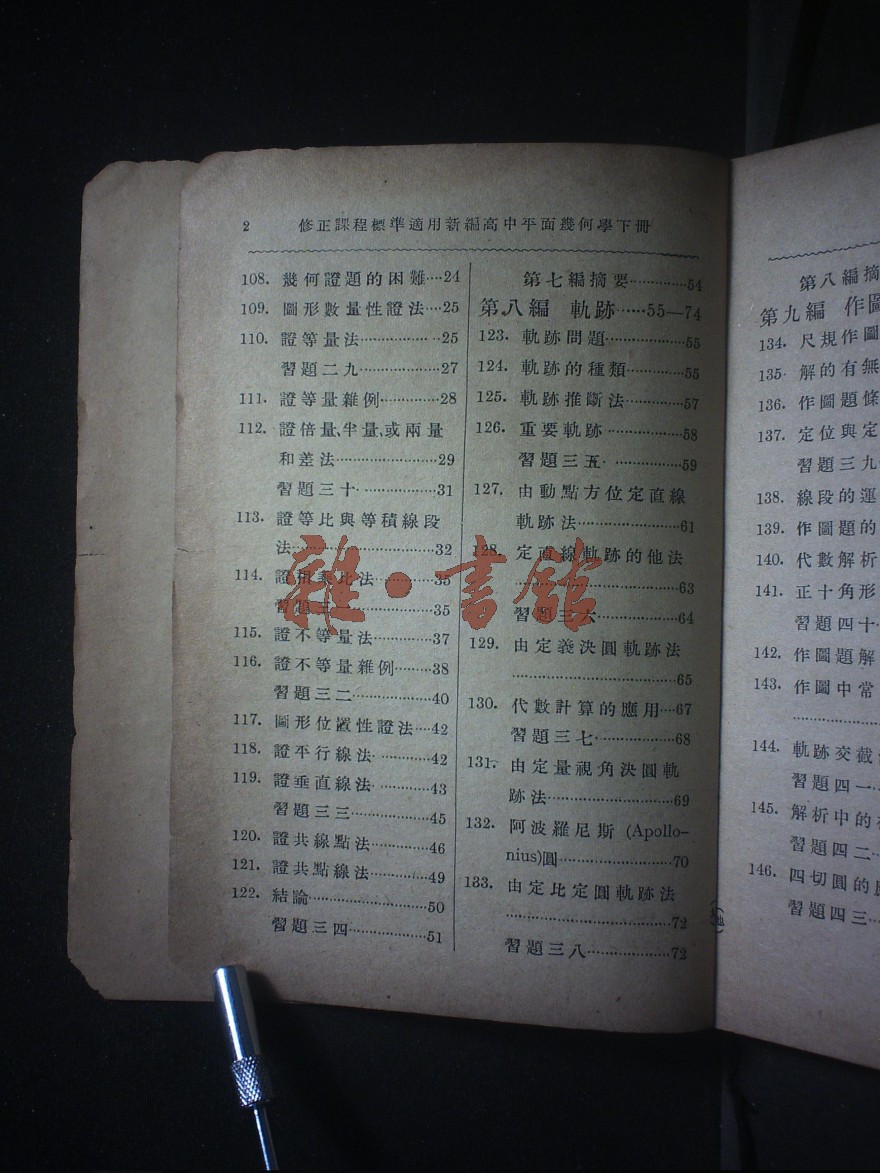 2 修正課程標準適用新編高中平面幾何學下冊
108. 幾何證題的困難…24
109. 圖形數量性證法…25
110. 證等量法……25
習題二九……27
111. 證等量雜例……28
112. 證倍量、半量、或兩量
和差法……29
習題三十……31
113. 證等比與等積線段
法……32
114. 證相乘比法……35
習題三一……35
115. 證不等量法……37
116. 證不等量雜例……38
習題三二……40
117. 圖形位置性證法…42
118. 證平行線法……42
119. 證垂直線法……43
習題三三……45
120. 證共線點法……46
121. 證共點線法……49
122. 結論……50
習題三四……51
第七編摘要……54
第八編 軌跡……55—74
123. 軌跡問題……55
124. 軌跡的種類……55
125. 軌跡推斷法……57
126. 重要軌跡……58
習題三五……59
127. 由動點方位定直線
軌跡法……61
128. 定直線軌跡的他法
……63
習題三六……64
129. 由定義決圓軌跡法
……65
130. 代數計算的應用…67
習題三七……68
131. 由定量視角決圓軌
跡法……69
132. 阿波羅尼斯 (Apollo-
nius)圓……70
133. 由定比定圓軌跡法
……72
習題三八……72
第八編摘
第九編 作圖
134. 尺規作圖
135. 解的有無
136. 作圖題條
137. 定位與定
習題三九
138. 線段的運
139. 作圖題的
140. 代數解析
141. 正十角形
習題四十
142. 作圖題解
143. 作圖中常
144. 軌跡交截
習題四一
145. 解析中的
習題四二
146. 四切圓的
習題四三
雜·書館